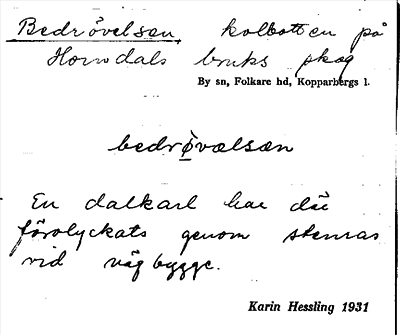 Bedrövelsen, kolbotten på
Horndals bruks skog
By sn, Folkare hd, Kopparbergs l.
bedrövælsæn
En dalkarl har där
förolyckats genom stenras
vid vägbygge.
Karin Hessling 1931